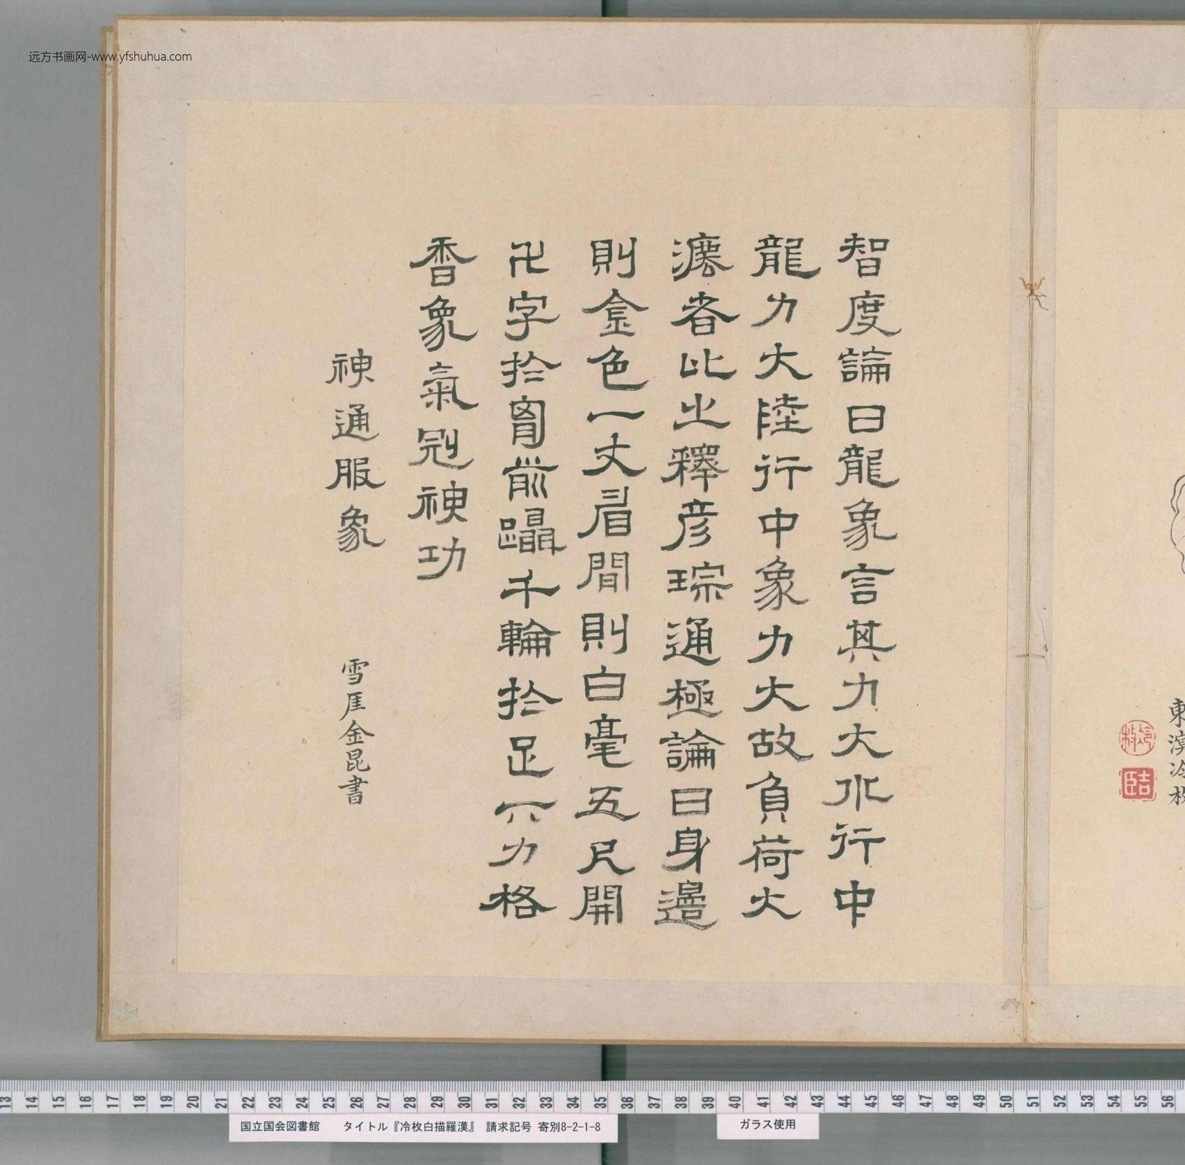 远方书画网-www.yfshuhua.com
智度論曰龍象言其力大水行中
龍力大陸行中象力大故負荷大
灋者比之釋彦琮通極論曰身邊
則金色一丈眉間則白毫五尺開
卍字於胷前躡千輪於足下力格
香象氣冠神功
神通服象
雪厓金昆書
東濱冷枚
国立国会図書館 タイトル『冷枚白描羅漢』 請求記号 寄別8-2-1-8
ガラス使用
13 14 15 16 17 18 19 20 21 22 23 24 25 26 27 28 29 30 31 32 33 34 35 36 37 38 39 40 41 42 43 44 45 46 47 48 49 50 51 52 53 54 55 56